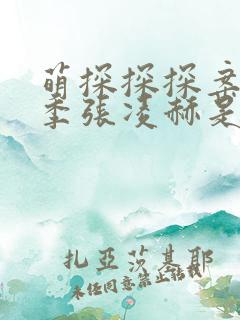 萌探探探案
季張凌赫是
扎亞莎基耶
未經同意禁止轉載